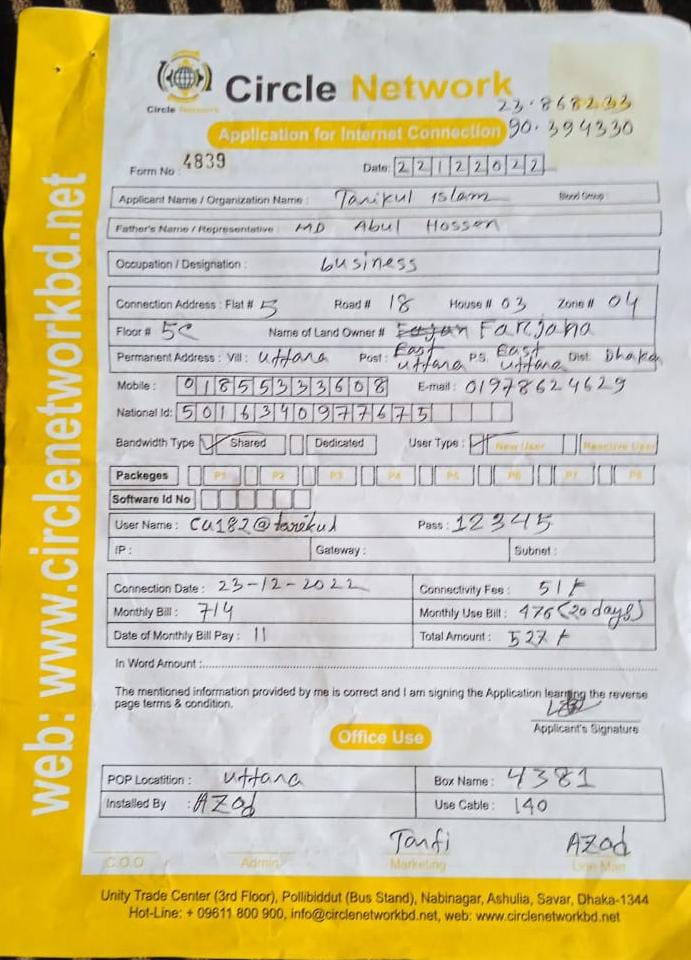 Circle Network
23.868233
Circle Network
90.394330
Application for Internet Connection
Form No : 4839 Date: 22122022
Applicant Name / Organization Name : Tarikul islam Blood Group :
Father's Name / Representative : MD Abul Hossen
Occupation / Designation : business
Connection Address : Flat # 5 Road # 18 House # 03 Zone # 04
Floor # 5C Name of Land Owner # Farjana
Permanent Address : Vill : uttara Post : East uttara P.S. East uttara Dist: Dhaka
Mobile : 01855333608 E-mail : 01978624629
National Id: 5016340977675
Bandwidth Type Shared Dedicated User Type : New User Reactive User
Packeges P1 P2 P3 P4 P5 P6 P7 P8
Software Id No
User Name : CU182@tarikul Pass : 12345
IP : Gateway : Subnet :
Connection Date : 23-12-2022 Connectivity Fee : 51/-
Monthly Bill : 714 Monthly Use Bill : 476 (20 days)
Date of Monthly Bill Pay : 11 Total Amount : 527/-
In Word Amount :
The mentioned information provided by me is correct and I am signing the Application learning the reverse
page terms & condition.
Applicant's Signature
Office Use
POP Locatition : uttara Box Name : 4381
Installed By : AZad Use Cable : 140
Tanfi AZad
C.O.O Admin Marketing Line Man
Unity Trade Center (3rd Floor), Pollibiddut (Bus Stand), Nabinagar, Ashulia, Savar, Dhaka-1344
Hot-Line: + 09611 800 900, info@circlenetworkbd.net, web: www.circlenetworkbd.net
web: www.circlenetworkbd.net